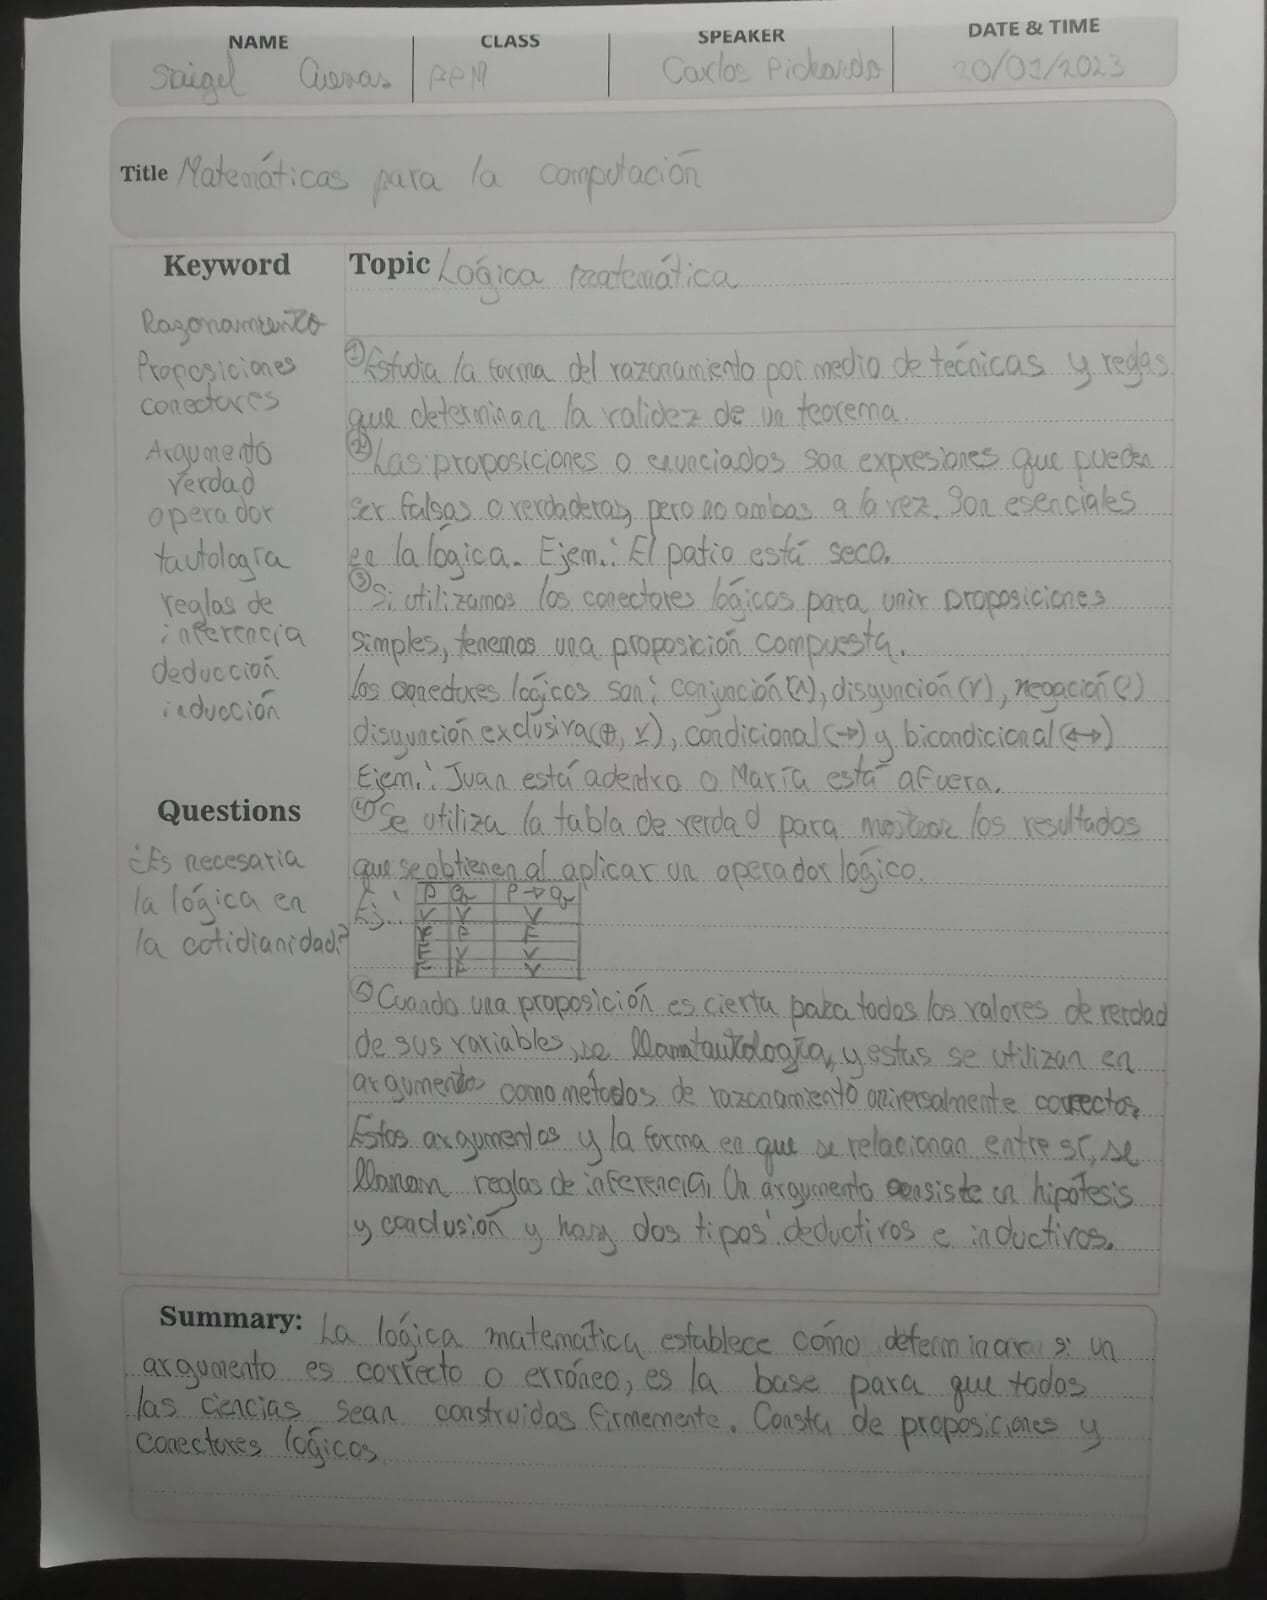 NAME CLASS SPEAKER DATE & TIME
Saigel Cuevas. PPM Carlos Pichardo 20/01/2023
Title Matemáticas para la computación
Keyword
Razonamiento
Proposiciones
conectores
Argumento
verdad
operador
tautología
reglas de
inferencia
deducción
inducción
Questions
¿Es necesaria
la lógica en
la cotidianidad?
Topic Lógica matemática
① Estudia la forma del razonamiento por medio de técnicas y reglas
que determinan la validez de un teorema.
② Las proposiciones o enunciados son expresiones que pueden
ser falsas o verdaderas, pero no ambas a la vez. Son esenciales
en la lógica. Ejem.: El patio está seco.
③ Si utilizamos los conectores lógicos para unir proposiciones
simples, tenemos una proposición compuesta.
los conectores lógicos son: conjunción (∧), disyunción (∨), negación (')
disyunción exclusiva (⊕, ⊻), condicional (→) y bicondicional (↔)
Ejem.: Juan está adentro o María está afuera.
④ Se utiliza la tabla de verdad para mostrar los resultados
que se obtienen al aplicar un operador lógico.
Ej.: P Q P → Q
V V V
V F F
F V V
F F V
⑤ Cuando una proposición es cierta para todos los valores de verdad
de sus variables, se llama tautología, y estas se utilizan en
argumentos como métodos de razonamiento universalmente correctos.
Estos argumentos y la forma en que se relacionan entre sí, se
llaman reglas de inferencia, Un argumento consiste en hipótesis
y conclusión y hay dos tipos: deductivos e inductivos.
Summary: La lógica matemática establece cómo determinar si un
argumento es correcto o erróneo, es la base para que todas
las ciencias sean construidas firmemente. Consta de proposiciones y
conectores lógicos